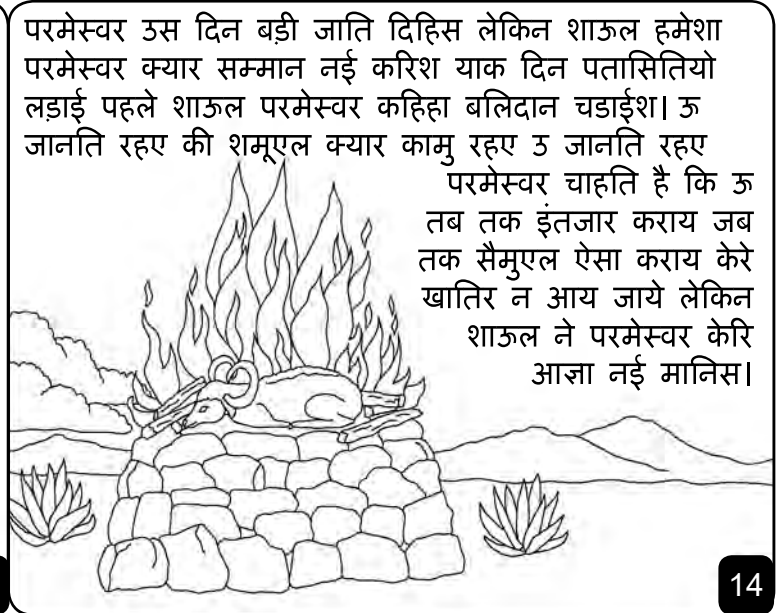 परमेस्वर उस दिन बड़ी जाति दिहिस लेकिन शाऊल हमेशा
परमेस्वर क्यार सम्मान नई करिश याक दिन पतासितियो
लड़ाई पहले शाऊल परमेस्वर कहिहा बलिदान चडाईश। ऊ
जानति रहए की शमूएल क्यार कामु रहए उ जानति रहए
परमेस्वर चाहति है कि ऊ
तब तक इंतजार कराय जब
तक सैमुएल ऐसा कराय केरे
खातिर न आय जाये लेकिन
शाऊल ने परमेस्वर केरि
आज्ञा नई मानिस।
14